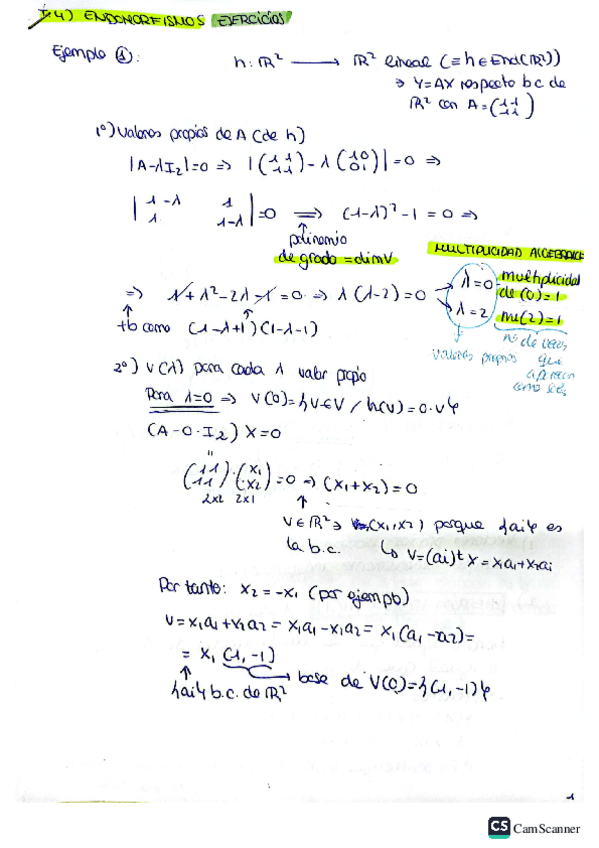 I.4) ENDOMORFISMOS EJERCICIOS
Ejemplo ①: h: ℝ² ⟶ ℝ² lineal (≡ h ∈ End(ℝ²))
⇒ Y=AX respecto b.c de
ℝ² con A = (1 1 / 1 1)
1º) Valores propios de A (de h)
|A-λI₂|=0 ⇒ |(1 1 / 1 1) - λ (1 0 / 0 1)| = 0 ⇒
|1-λ 1 / 1 1-λ| = 0 ⇒ (1-λ)² - 1 = 0 ⇒
polinomio
de grado = dimV
MULTIPLICIDAD ALGEBRAICA
⇒ 1+λ²-2λ-1=0 ⇒ λ(λ-2)=0
λ=0 multiplicidad
de (0)=1
λ=2 m(2)=1
tb como (1-λ+1)(1-λ-1)
valores propios
nº de veces
que
aparecen
como sol.
2º) V(λ) para cada λ valor propio
Para λ=0 ⇒ V(0)={v∈V / h(v)=0·v}
(A-0·I₂) X=0
(1 1 / 1 1)·(x₁ / x₂)=0 ⇒ (x₁+x₂)=0
2x2 2x1
v∈ℝ² ⇒ (x₁,x₂) porque {ai} es
la b.c. ↳ v=(ai)ᵗ x = x₁a₁+x₂a₂
Por tanto: x₂ = -x₁ (por ejemplo)
v=x₁a₁+x₂a₂ = x₁a₁-x₁a₂ = x₁(a₁-a₂)=
= x₁ (1,-1)
{ai} b.c. de ℝ²
base de V(0)={(1,-1)}
1
CS CamScanner